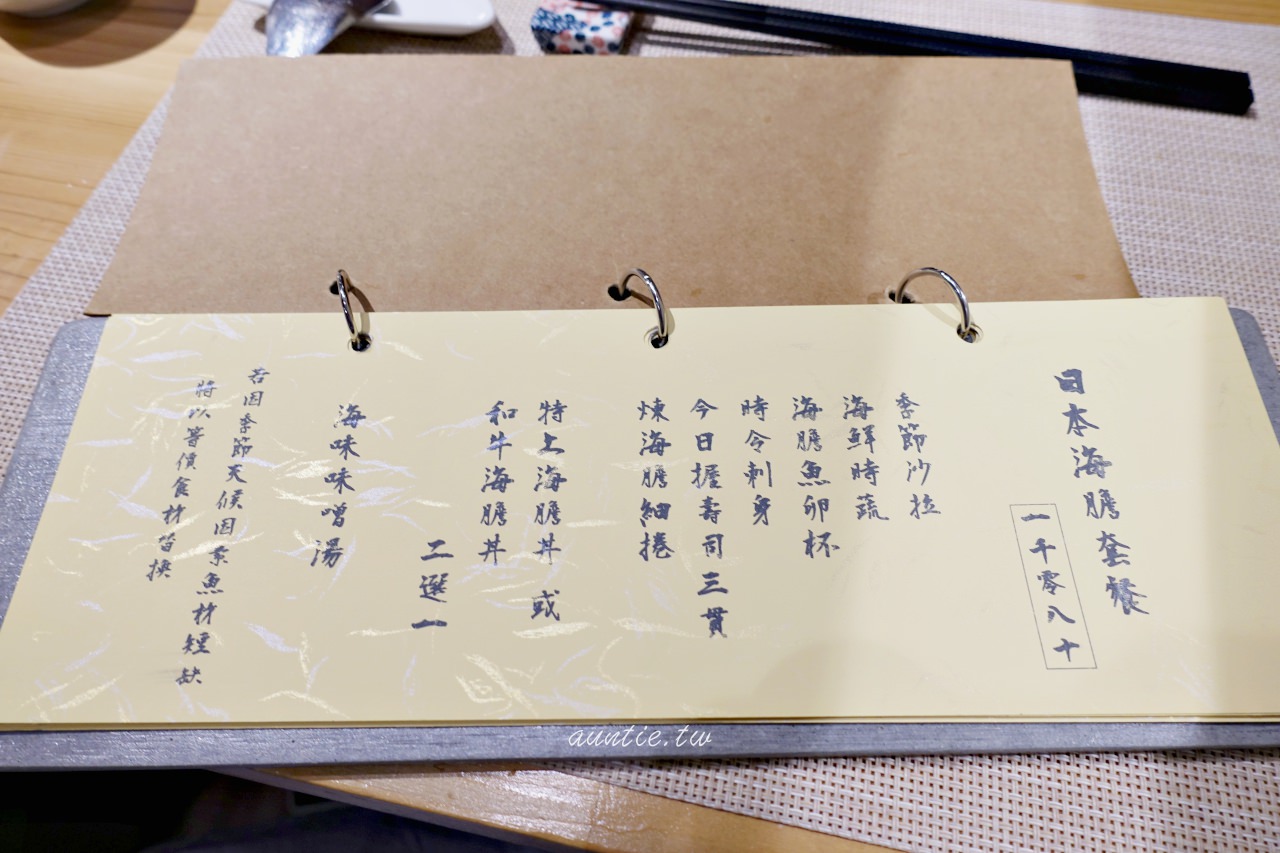 日本海膽套餐
一千零八十
季節沙拉
海鮮時蔬
海膽魚卵杯
時令刺身
今日握壽司三貫
炙海膽細捲
特上海膽丼 或
和牛海膽丼
二選一
海味味噌湯
若因季節天候因素魚材短缺
將以等價食材替換
auntie.tw